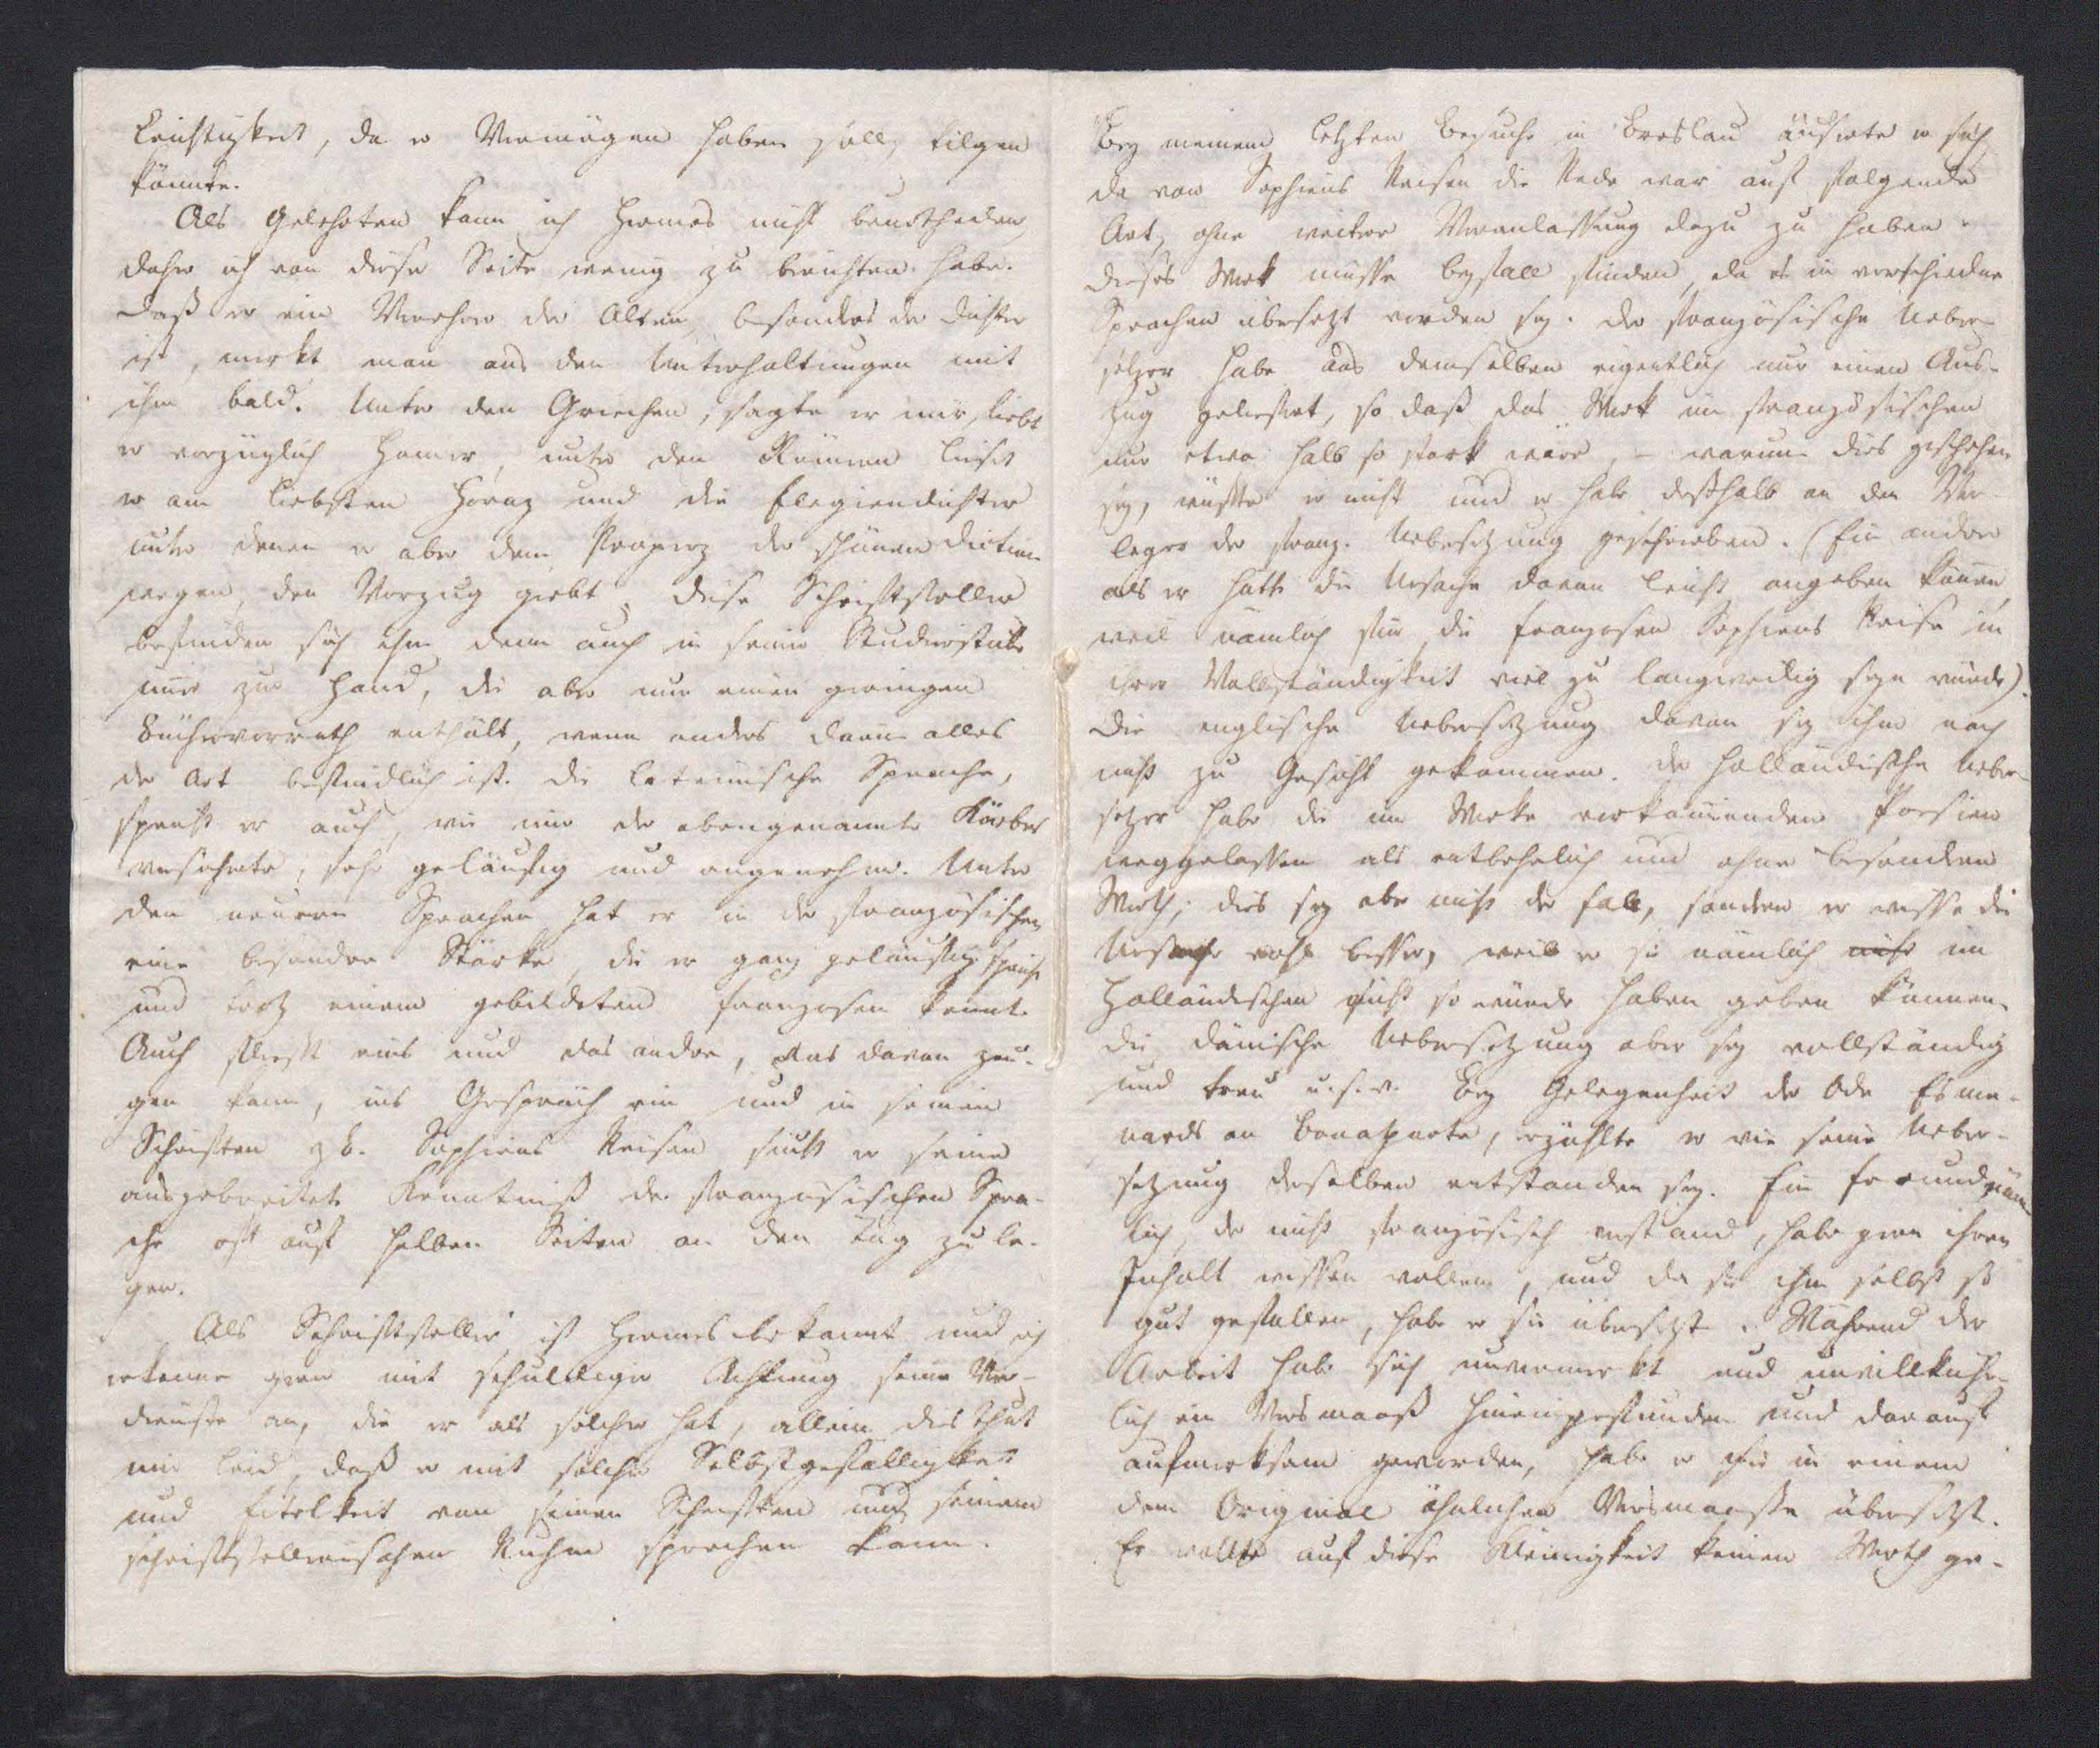 Leichtigkeit, da er Vermögen haben soll, tilgen
könnte.
Als Gelehrten kann ich Hermes nicht beurtheilen,
daher ich von dieser Seite wenig zu berichten habe.
Daß er ein Verehrer der Alten, besonders der Dichter
ist, merkt man aus den Unterhaltungen mit
ihm bald. Unter den Griechen, sagte er mir, liebt
er vorzüglich Homer, unter den Römern lieset
er am liebsten Horaz und die Elegiendichter
unter denen er aber dem Properz der schönen Diction
wegen, den Vorzug giebt. Diese Schriftsteller
befinden sich ihm denn auch in seiner Studierstube
nur zur Hand, die aber nur einen geringen
Büchervorrath enthält, wenn anders darin alles
der Art befindlich ist. Die lateinische Sprache,
spricht er auch, wie mir der obengenannte Körber
versicherte, sehr geläufig und angenehm. Unter
den neuern Sprachen hat er in der französischen
eine besondre Stärke, die er ganz geläufig spricht
und trotz einem gebildeten Franzosen kennt.
Auch fließt eins und das andre, was davon zeu-
gen kann, ins Gespräch ein und in seinen
Schriften z. B. Sophiens Reisen sucht er seine
ausgebreitete Kenntniß der französischen Spra-
che oft auf halben Seiten an den Tag zu le-
gen.
Als Schriftsteller ist Hermes bekannt und ich
erkenne gern mit schuldiger Achtung seine Ver-
dienste an, die er als solcher hat, allein dies thut
mir leid, daß er mit solcher Selbstgefälligkeit
und Eitelkeit von seinen Schriften und seinem
schriftstellerischen Ruhme sprechen kann.
Bey meinem letzten Besuche in Breslau äußerte er sich,
da von Sophiens Reisen die Rede war auf folgende
Art, ohne weitere Veranlassung dazu zu haben:
dieses Werk müsse Beyfall finden, da es in verschiedne
Sprachen übersetzt worden sey. Der französische Ueber-
setzer habe aus demselben eigentlich nur einen Aus-
zug geliefert, so daß das Werk im französischen
nur etwa halb so stark wäre, – warum dies geschehen
sey, wüßte er nicht und er habe deßhalb an den Ver-
leger der franz. Uebersetzung geschrieben. (Ein andrer
als er hätte die Ursache davon leicht angeben können,
weil nämlich für die Franzosen Sophiens Reise in
ihrer Vollständigkeit viel zu langweilig seyn würde).
Die englische Uebersetzung davon sey ihm noch
nicht zu Gesicht gekommen. Der holländische Ueber-
setzer habe die im Werke vorkommenden Poesien
weggelassen als entbehrlich und ohne besondern
Werth; dies sey aber nicht der Fall, sondern er wisse die
Ursache wohl besser, weil er sie nämlich nicht im
Holländischen nicht so würde haben geben können.
die dänische Uebersetzung aber sey vollständig
und treu u. s. w. Bey Gelegenheit der Ode Esme-
nards an Bonaparte, erzählte er wie seine Ueber-
setzung derselben entstanden sey. Ein Freund näm-
lich, der nicht französisch verstand, habe gern ihren
Inhalt wissen wollen, und da sie ihm selbst so
gut gefallen, habe er sie übersetzt. Während der
Arbeit habe sich unvermerkt und unwillkühr-
lich ein Versmaaß hineingefunden und darauf
aufmerksam geworden, habe er sie in einem
dem Original ähnlichen Versmaaße übersetzt.
Er wollte auf diese Kleinigkeit keinen Werth ge-